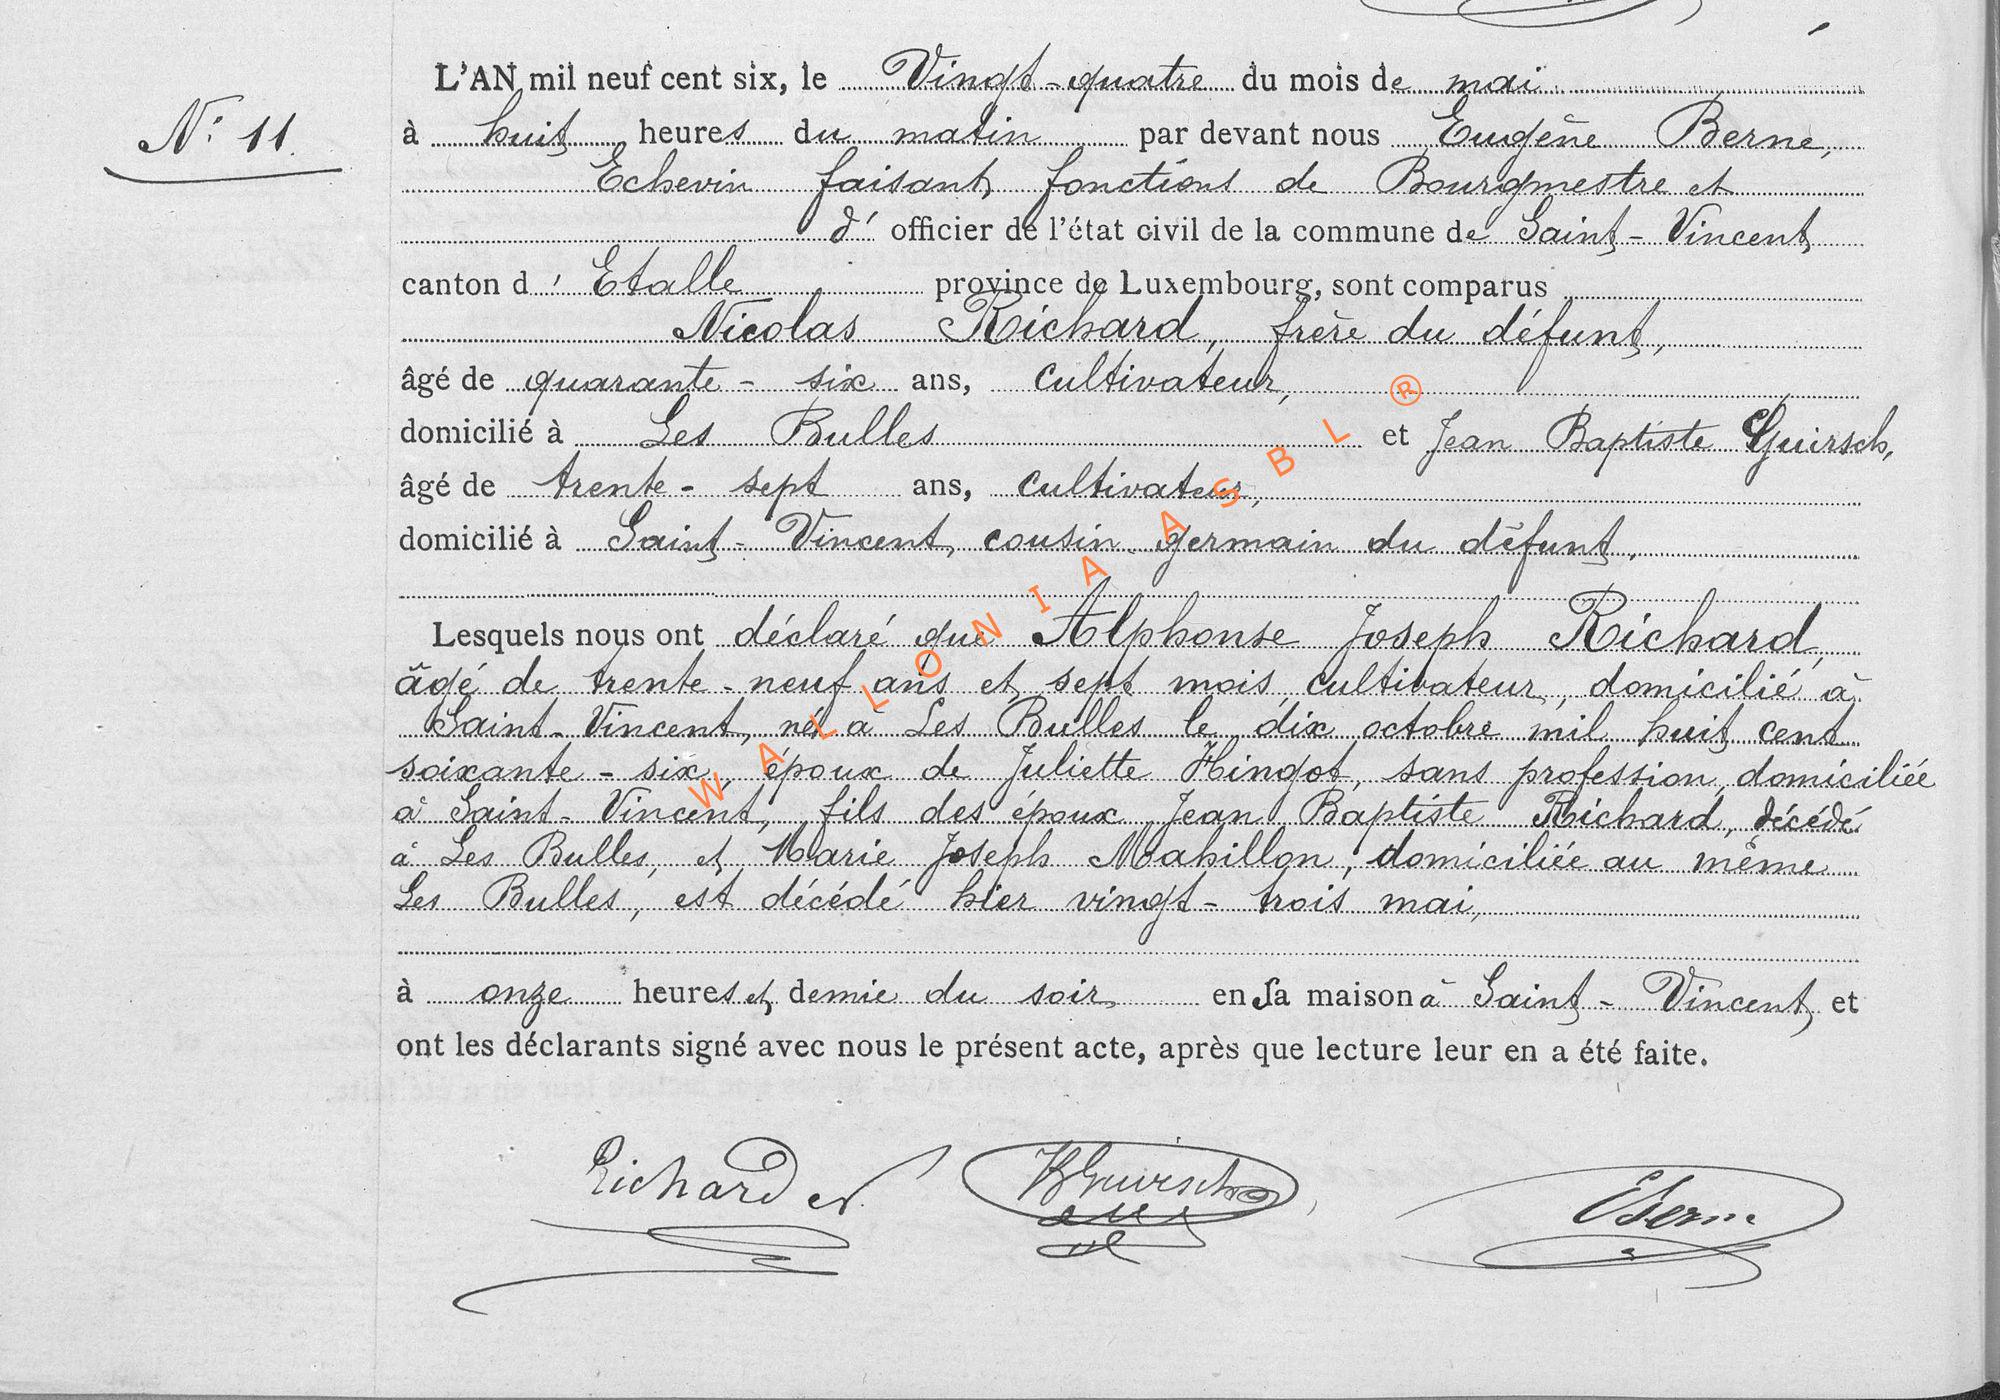 L'AN mil neuf cent six, le Vingt-quatre du mois de mai
N° 11.
à huit heures du matin par devant nous Eugène Berne,
Echevin faisant fonctions de Bourgmestre et
d' officier de l'état civil de la commune de Saint-Vincent
canton d' Etalle province de Luxembourg, sont comparus
Nicolas Richard, frère du défunt,
âgé de quarante-six ans, cultivateur,
domicilié à Les Bulles et Jean Baptiste Guirsch,
âgé de trente-sept ans, cultivateur,
domicilié à Saint-Vincent, cousin germain du défunt.
Lesquels nous ont déclaré que Alphonse Joseph Richard,
âgé de trente-neuf ans et sept mois, cultivateur, domicilié à
Saint-Vincent, né à Les Bulles le dix octobre mil huit cent
soixante-six, époux de Juliette Hingot, sans profession, domiciliée
à Saint-Vincent, fils des époux Jean Baptiste Richard, décédé
à Les Bulles, et Marie Joseph Mahillon, domiciliée au même
Les Bulles, est décédé hier vingt-trois mai,
à onze heures et demie du soir en sa maison à Saint-Vincent, et
ont les déclarants signé avec nous le présent acte, après que lecture leur en a été faite.
Richard N. JBGuirsch EBerne
WALLONIA ASBL ®